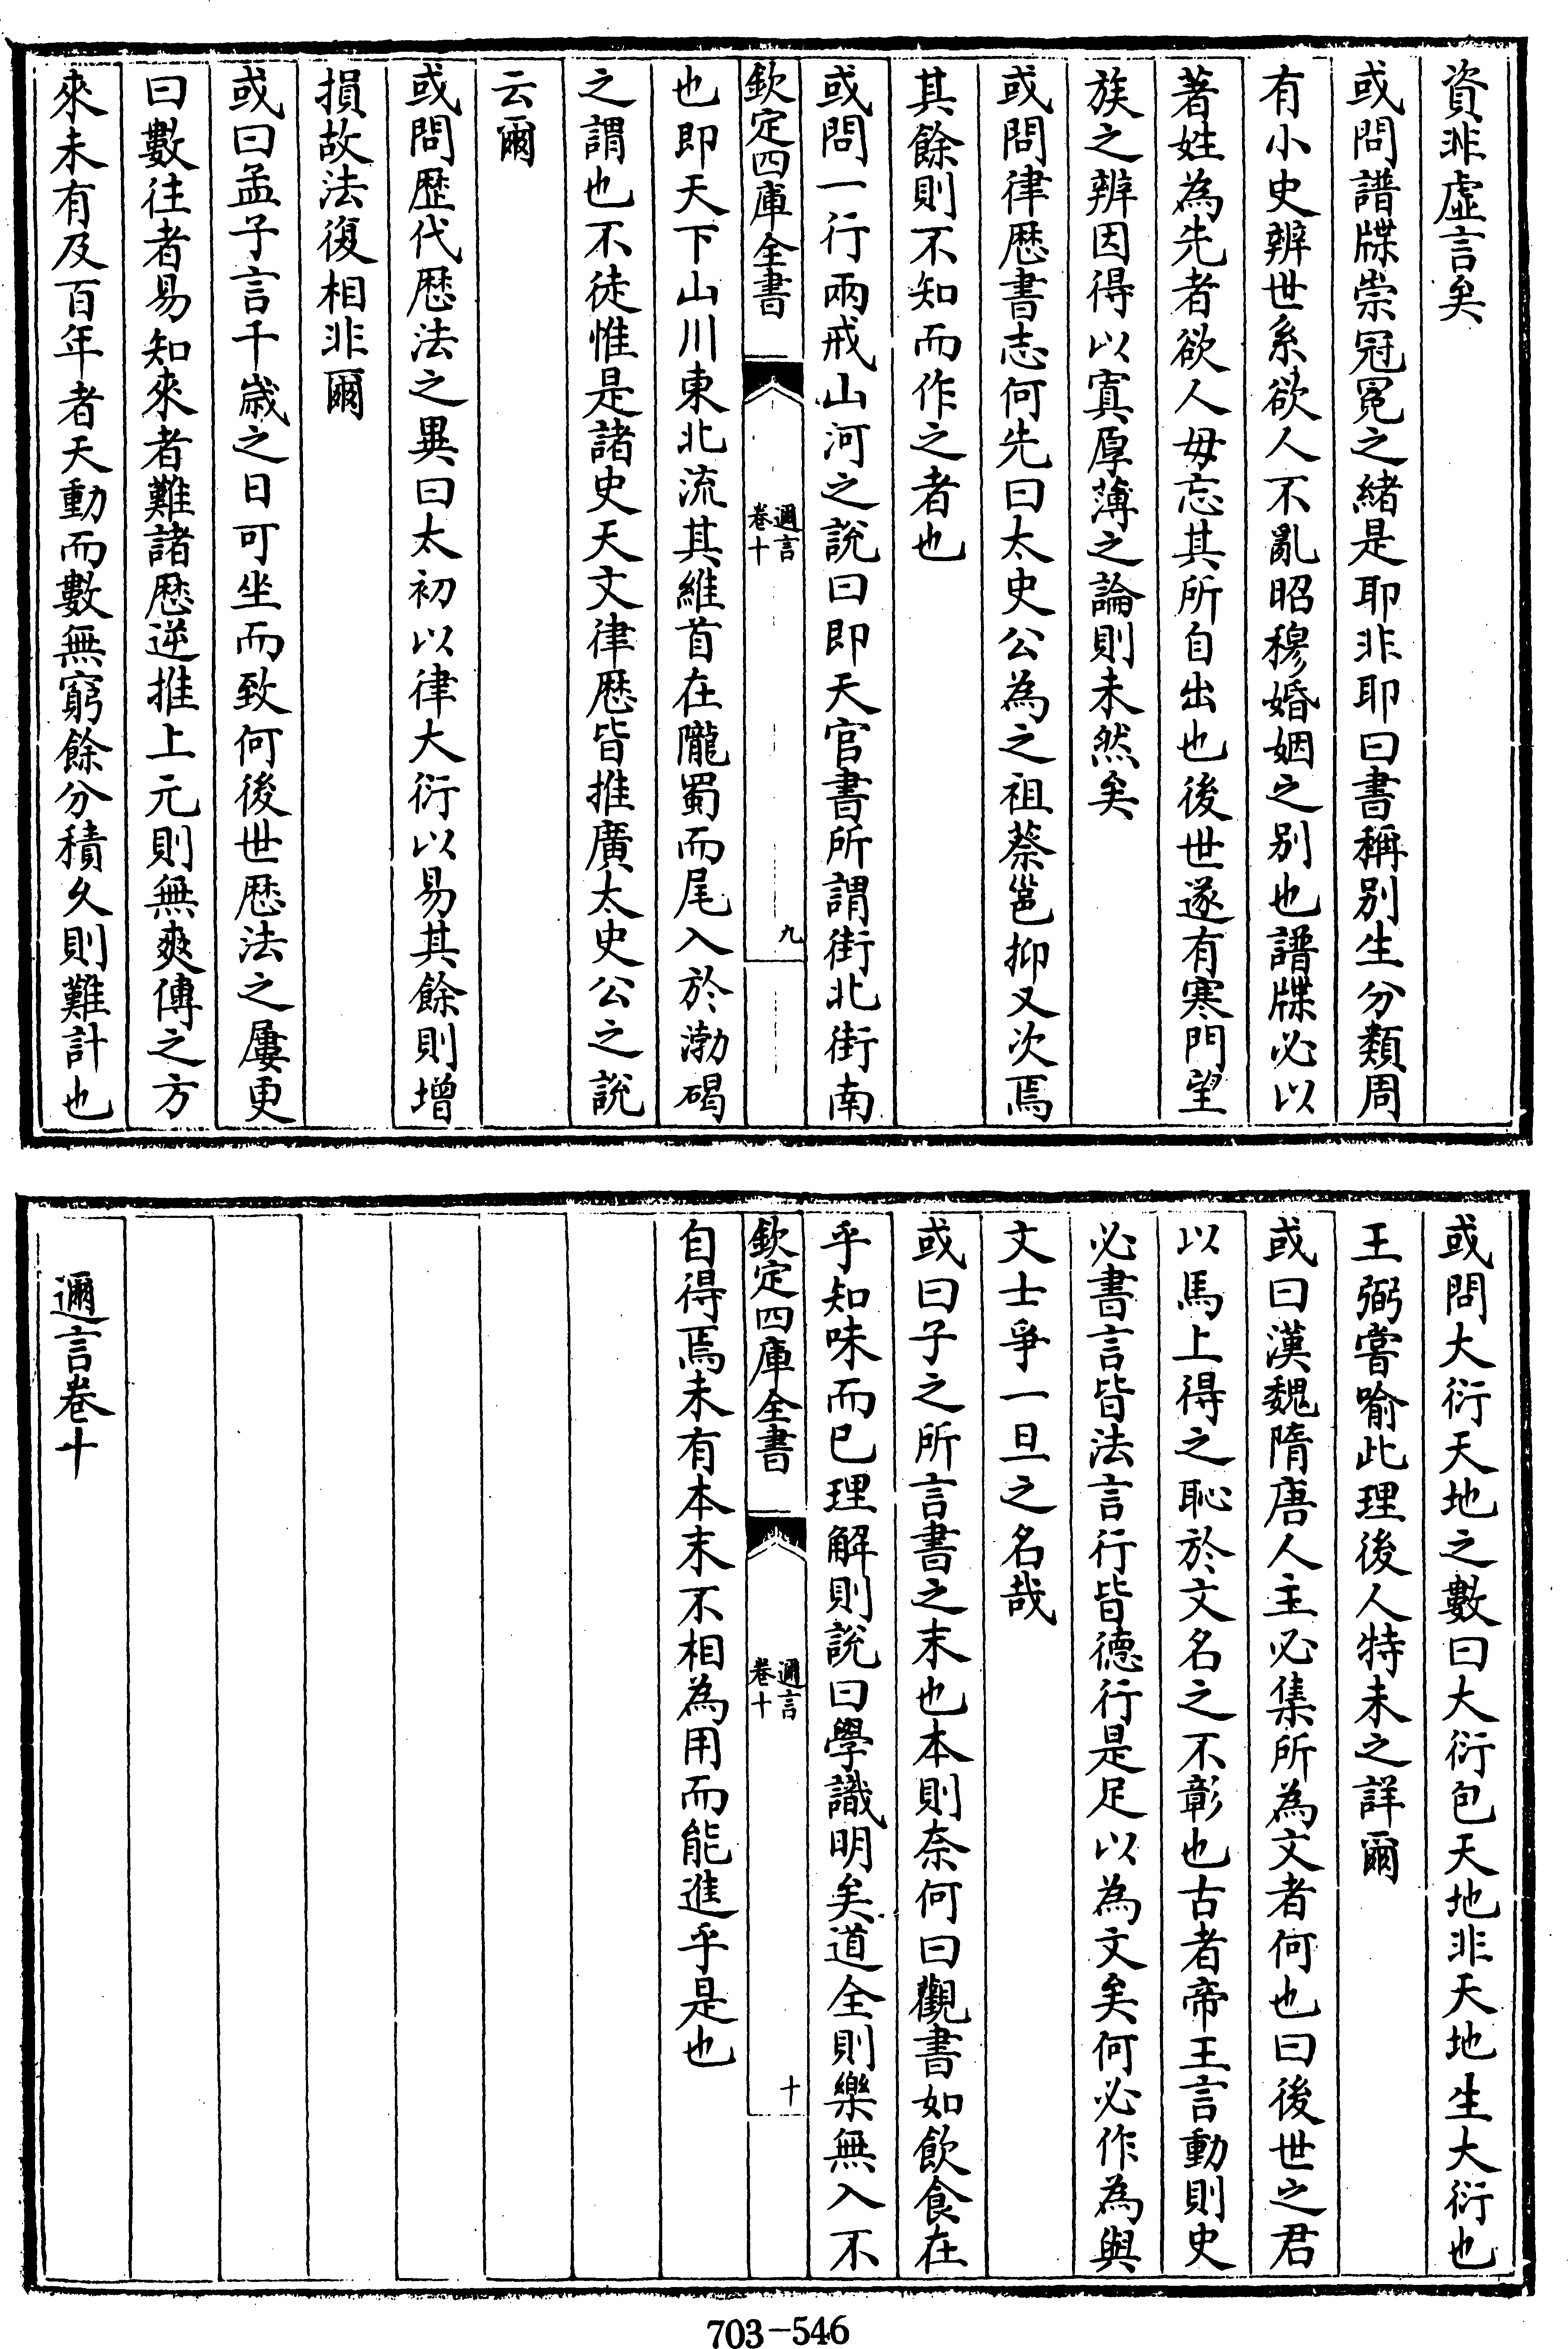 資非虛言矣
或問譜牒崇冠冕之緒是耶非耶曰書稱別生分類周
有小史辨世系欲人不亂昭穆婚姻之別也譜牒必以
著姓為先者欲人毋忘其所自出也後世遂有寒門望
族之辨因得以寘厚薄之論則未然矣
或問律厯書志何先曰太史公為之祖蔡邕抑又次焉
其餘則不知而作之者也
或問一行兩戒山河之說曰即天官書所謂街北街南
欽定四庫全書
邇言
卷十
九
也即天下山川東北流其維首在隴蜀而尾入於渤碣
之謂也不徒惟是諸史天文律厯皆推廣太史公之說
云爾
或問歴代厯法之異曰太初以律大衍以易其餘則增
損故法復相非爾
或曰孟子言千歲之日可坐而致何後世厯法之屢更
曰數往者易知來者難諸厯逆推上元則無爽傳之方
來未有及百年者天動而數無窮餘分積久則難計也
或問大衍天地之數曰大衍包天地非天地生大衍也
王弼嘗喻此理後人特未之詳爾
或曰漢魏隋唐人主必集所為文者何也曰後世之君
以馬上得之恥於文名之不彰也古者帝王言動則史
必書言皆法言行皆德行是足以為文矣何必作為與
文士爭一旦之名哉
或曰子之所言書之末也本則奈何曰觀書如飲食在
乎知味而已理解則說曰學識明矣道全則樂無入不
欽定四庫全書
邇言
卷十
十
自得焉未有本末不相為用而能進乎是也
邇言卷十
703-546